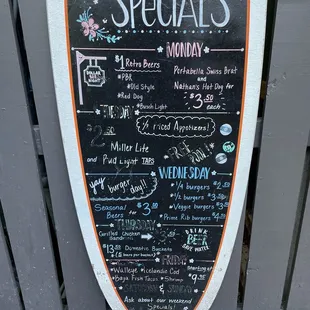 SPECIALS
MONDAY
$1 Retro Beers
•PBR
•Old Style
Red Dog
•Busch Light
Portabella Swiss Brat
and
Nathan's Hot Dog for
$3.50
each
TUESDAY
1/2 Priced Appetizers!
$2.50
Miller Lite
and Bud Light TAPS
FREE POOL
WEDNESDAY
yay burger day!!
•1/4 burgers $2.50
•1/2 burgers $3.50
•Veggie burgers
Prime Rib burgers
Seasonal Beers for $3.00
THURSDAY
Grilled Chicken
DRINK BEER
Domestic Buckets
(5 beers per bucket)
FRIDAY
•Walleye •Icelandic Cod
•Baja Fish Tacos •Shrimp
Starting at
SATURDAY & SUNDAY
Ask about our weekend
Specials!